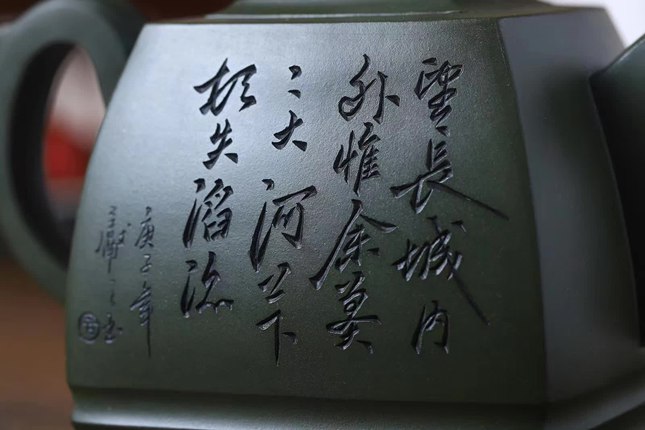 望長城内
外惟余莽
〻大河上下
顿失滔滔
庚子年